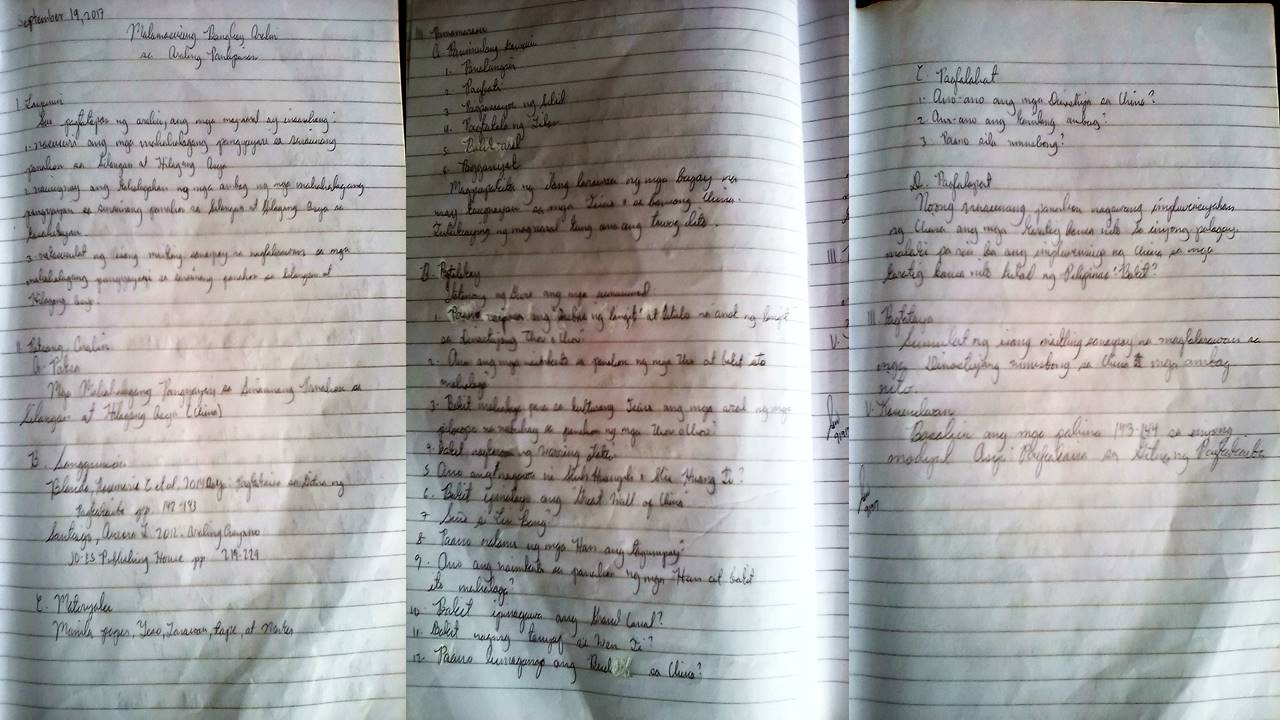 September 19, 2017
Malamasusing Banghay Aralin
sa Araling Panlipunan
I. Layunin
Sa pagtatapos ng aralin, ang mga mag-aaral ay inaasahang:
1. nasusuri ang mga mahahalagang pangyayari sa sinaunang
panahon sa Silangan at Hilagang Asya
2. ang ng mga ambag ng mga mahahalagang
pangyayari sa sinaunang panahon sa Silangan at Hilagang Asya sa
kasalukuyan.
3. nakasusulat ng isang maikling sanaysay na naglalarawan sa mga
mahahalagang pangyayari sa sinaunang panahon sa Silangan at
Hilagang Asya.
II. Nilalaman
A. Paksa
Mga Mahahalagang Pangyayari sa Sinaunang Panahon sa
Silangan at Hilagang Asya (China)
B. Sanggunian
Blando, Rosemarie C. et al. 2014. Asya: Pagkakaisa sa Gitna ng
Pagkakaiba pp. 142-143
Santiago, Aurora L. 2012. Araling Asyano
JO-ES Publishing House pp. 219-229
C. Materyales
Manila paper, Yeso, Larawan, tape, at Marker
III. Pamamaraan
A. Panimulang Gawain
1. Panalangin
2. Pagbati
3. Pagsasaayos ng Silid
4. Pagtatala ng Liban
5. Balik-aral
6. Pagganyak
Magpapakita ng ilang larawan ng mga bagay na
may sa mga Tsino o sa bansang China.
Tutukuyin ng mag-aaral kung ano ang tawag dito.
B. Pagtalakay
ng Guro ang mga sumusunod
1. Paano ang "Basbas ng langit" at bilang na anak ng langit
sa dinastiyang Zhou o Chou?
2. Ano ang mga naimbento sa panahon ng mga Zhou at bakit ito
mahalaga?
3. Bakit mahalaga para sa kulturang Tsino ang mga aral ng mga
pilosopo na nabuhay sa panahon ng mga Zhou o Chou?
4. Bakit nagkaroon ng Warring States
5. Ano ang nagawa ni Shih Huangdi o Shi Huang Ti?
6. Bakit ipinatayo ang Great Wall of China
7. Sino si Liu Bang
8. Paano natamo ng mga Han ang tagumpay?
9. Ano ang naimbento sa panahon ng mga Han at bakit
ito mahalaga?
10. Bakit ipinagawa ang Grand Canal?
11. Bakit naging tanyag si Wen Ti?
12. Paano lumaganap ang sa China?
C. Paglalahat
1. Ano-ano ang mga Dinastiya sa China?
2. Ano-ano ang kanilang ambag?
3. Paano sila umusbong?
D. Paglalapat
Noong sinaunang panahon nagawang impluwensyahan
ng China ang mga karatig bansa nito. Sa inyong palagay,
malaki pa rin ba ang impluwensiya ng China sa mga
karatig bansa nito katulad ng Pilipinas? Bakit?
III. Pagtataya
Sumulat ng isang maikling sanaysay na naglalarawan sa
mga Dinastiyang umusbong sa China at mga ambag
nito.
V. Kasunduan
Basahin ang mga pahina 143-144 sa inyong
modyul Asya: Pagkakaisa sa Gitna ng Pagkakaiba